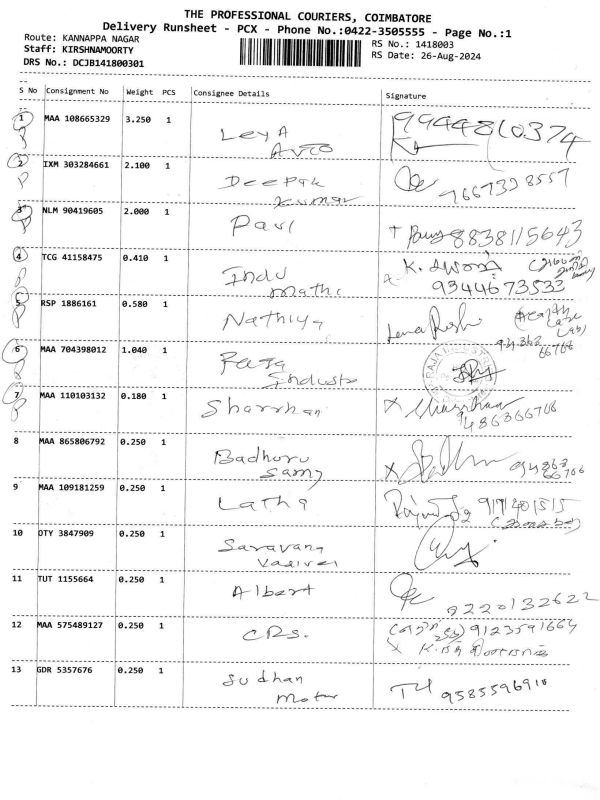 THE PROFESSIONAL COURIERS, COIMBATORE
Delivery Runsheet - PCX - Phone No.:0422-3505555 - Page No.:1
Route: KANNAPPA NAGAR
RS No.: 1418003
Staff: KIRSHNAMOORTY
RS Date: 26-Aug-2024
DRS No.: DCJB141800301
S No Consignment No Weight PCS Consignee Details Signature
1 MAA 108665329 3.250 1 Leya 9944810374
Auto
2 IXM 303284661 2.100 1 Deepak 7667398557
Kumar
3 NLM 90419605 2.000 1 Paul 8838115643
4 TCG 41158475 0.410 1 Indu K.
Mathi 9344673533
5 RSP 1886161 0.580 1 Nathiya Health
Care
Lab
94863
66766
6 MAA 704398012 1.040 1 Raja
7 MAA 110103132 0.180 1 Sharrhan X
486366766
8 MAA 865806792 0.250 1 Badhuru X 94863
Samy 66766
9 MAA 109181259 0.250 1 Latha 9171401515
10 OTY 3847909 0.250 1 Saravana
Vadivel
11 TUT 1155664 0.250 1 Albert
9220132622
12 MAA 575489127 0.250 1 CRS. 9123591664
X
13 GDR 5357676 0.250 1 Sudhan 9585596910
Motor